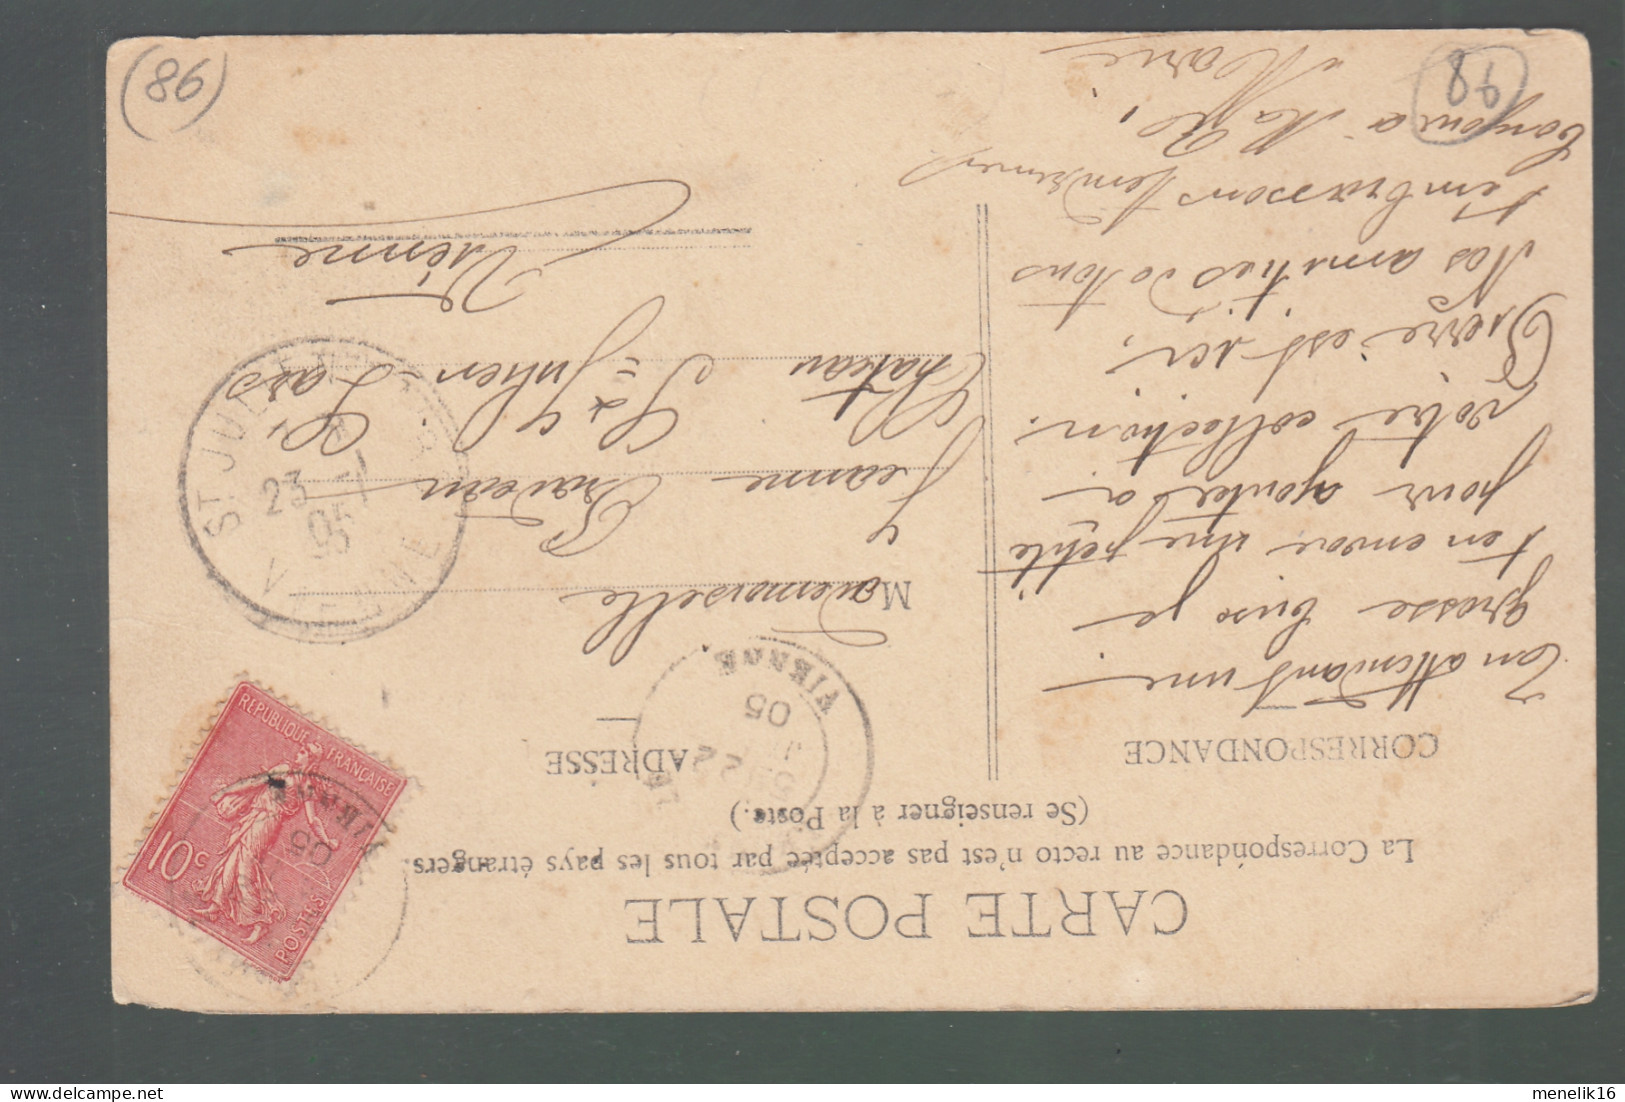 CARTE POSTALE
La Correspondance au recto n'est pas acceptée par tous les pays étrangers.
(Se renseigner à la Poste.)
CORRESPONDANCE
ADRESSE
En attendant une
grosse bise je
t'en envoie une petite
pour ajouter à
votre collection.
Pierre est ici,
Nos amitiés de tous
t'embrassons tendrement
Bonjour à
Marie
Mademoiselle
Jeanne
Château St Julien L'Ars
Vienne
REPUBLIQUE FRANÇAISE
10c
POSTES
ST JULIEN
23
05
VIENNE
22
05
VIENNE
86
86
menelik16